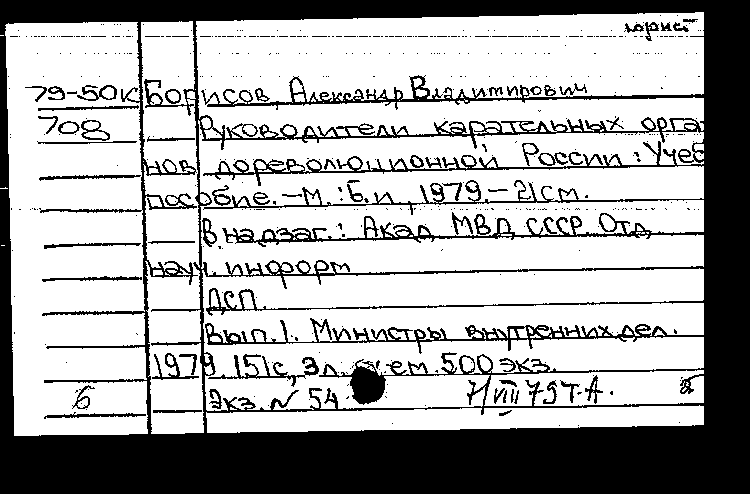 юрист
79-50к Борисов, Александр Владимирович
708 Руководители карательных орга
нов дореволюционной России : Учеб
пособие. - М. : Б.и, 1979. - 21 см.
В надзаг.: Акад МВД СССР Отд
науч. информ
ДСП.
Вып. 1. Министры внутренних дел.
1979. 151с, 3л. ем. 500 экз.
б Экз. № 54 7/VIII 79 Т-А.